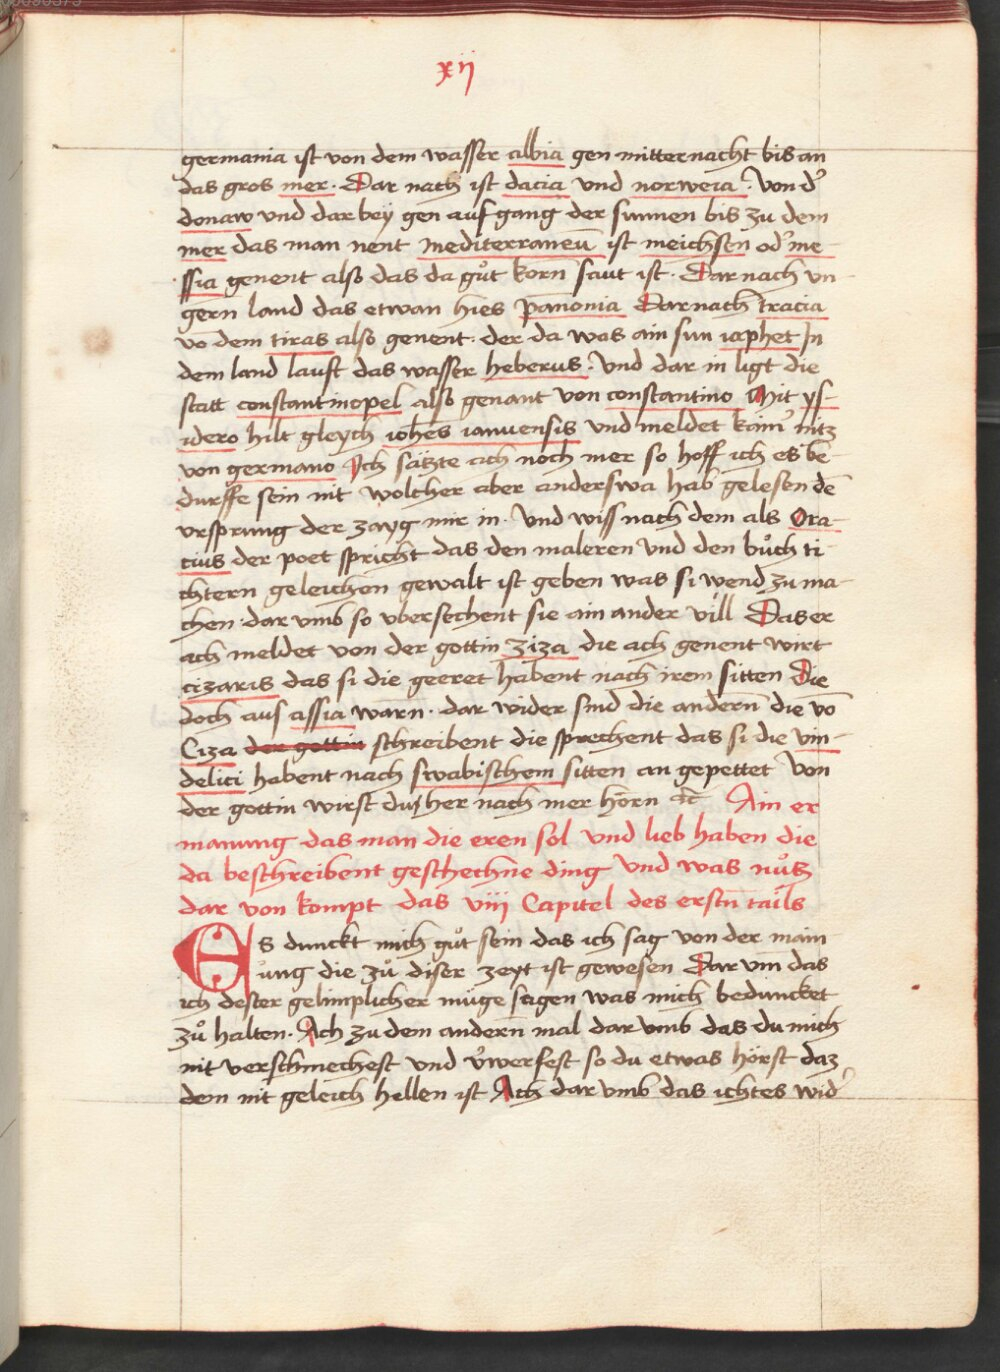 xij
germania ist von dem wasser albia gen mitternacht bis an
das gros mer · Dar nach ist dacia und norweia · Von d̛
donaw und dar bey gen auf gang der sunnen bis zu dem
mer das man nent Mediterraneū ist meichsen od̛ me-
ssia genent also das da gůt korn saut ist · Dar nach vn
gern land das etwan hies panonia Darnach tracia
vō dem tiras also genent · der da was ain sun iaphet In
dem land lauft das wasser heberus · Und dar in ligt die
statt constantinopel also genant von constantino Mit ys-
idero hilt gleych ioh̄es ianuensis und meldet kain̛ nitz
von germano Ich sätzte ach noch mer so hoff ich es be-
durffe sein nit wolcher aber anderswa hab gelesen dē
ursprung der zayg mir in · Und wiss nach dem als Ora-
cius der poet spricht das den maleren und den bůch ti-
chtern geleichen gewalt ist geben was si wend zu ma-
chen · dar umb so ubersechent sie ain ander vill Das er
ach meldet von der gottin ziza die ach genent wirt
cizaris das si die geeret habent nach irem sitten Die
doch aus assia warn · dar wider sind die andern̄ die vō
Ciza der gottin schreibent die sprechent das si die vin-
delici habent nach swabischem sitten an gepettet Von
der gottin wirst du her nach mer hörn ⁊c̄ Ain er
manung das man die eren sol und lieb haben die
da beschreibent geschechne ding und was nůtz
dar von kompt das viij Capitel des erstn̄ tails
ES dunckt mich gůt sein das ich sag von der main
ung die zů diser zeyt ist gewesen Dar um̄ das
ich dester gelimplicher muge sagen was mich beduncket
zů halten · Ach zu dem andern̄ mal dar umb das du mich
nit verschmechest und v̛werfest so du etwas hörst daz
dem nit geleich hellen ist Ach dar umb das ichtes wid̛